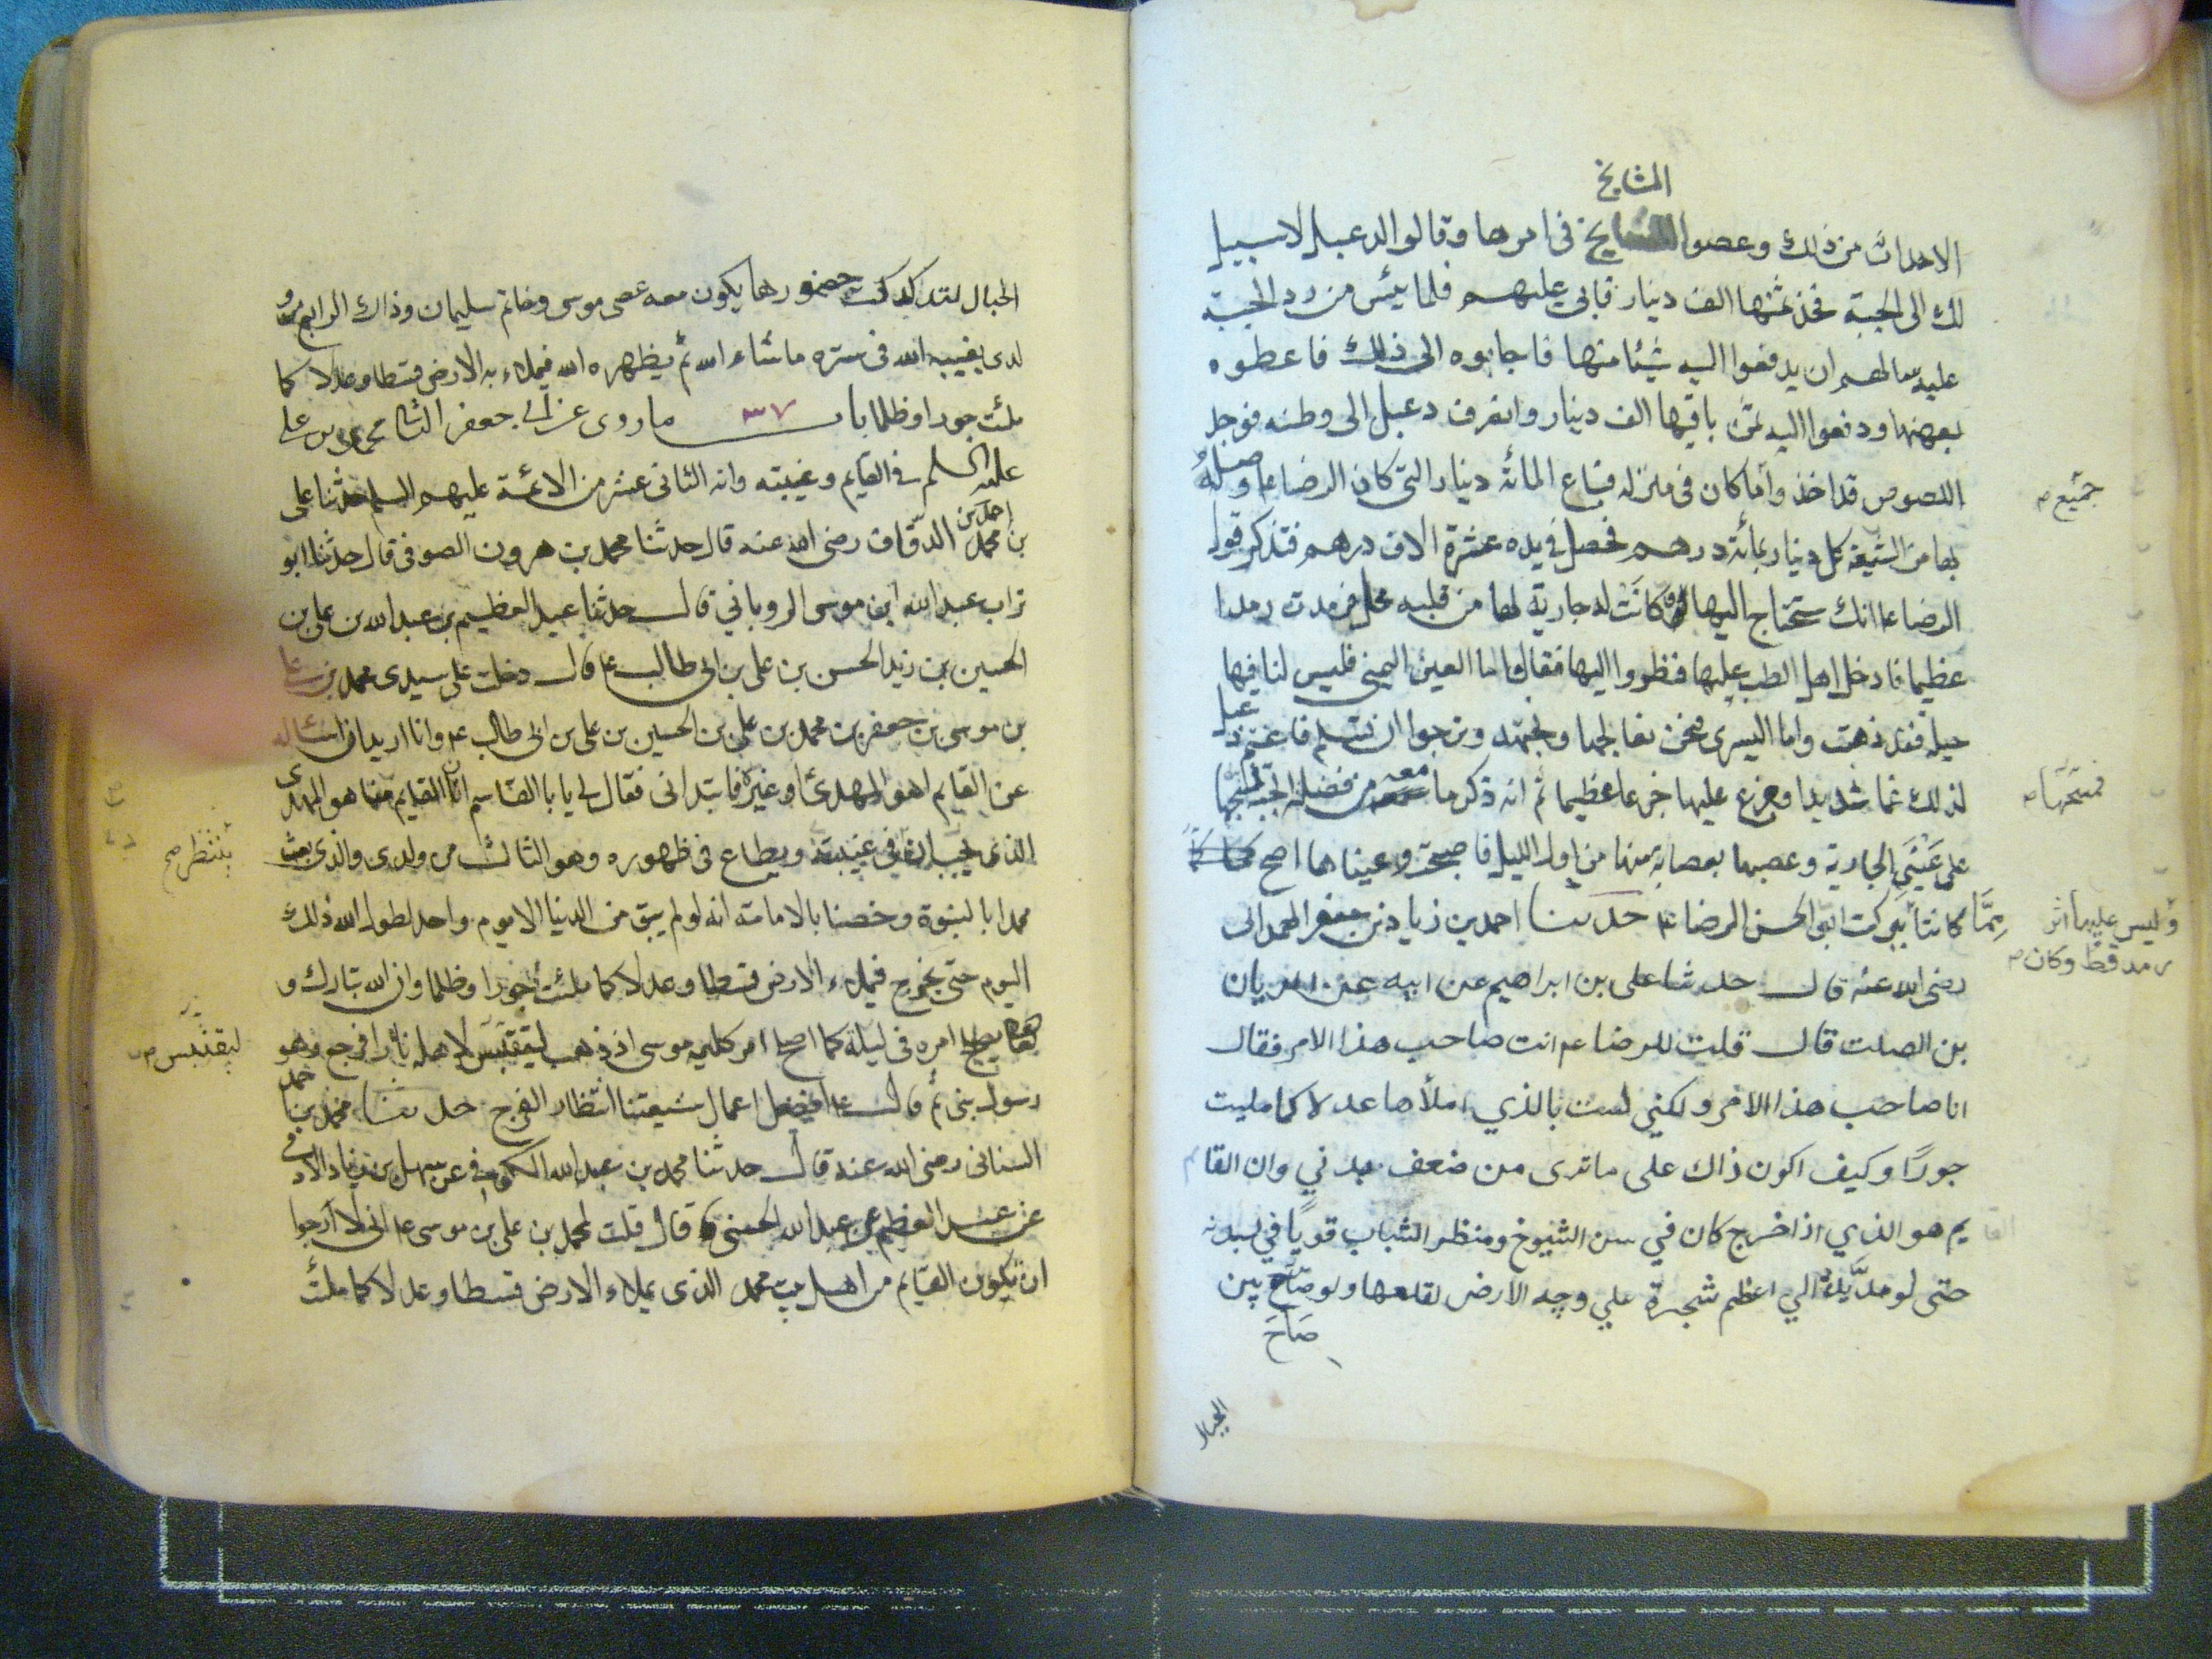 المشايخ
الاحداث من ذلك وعصوا المشايخ فى امرها وقالوا لدعبل لا سبيل
لك الى الجبة فخذ ثمنها الف دينار فابى عليهم فلما يئس من رد الجبة
عليه سالهم ان يدفعوا اليه شيئا منها فاجابوه الى ذلك فاعطوه
بعضها ودفعوا اليه ثمن باقيها الف دينار وانصرف دعبل الى وطنه فوجد
اللصوص قد اخذوا ما كان فى منزله فباع المائة دينار التى كان الرضا ع وصله
جميع م
بها من الشيعة كل دينار بمائة درهم فحصل فى يده عشرة الاف درهم فتذكر قول
الرضا ع انك ستحتاج اليها وكانت له جارية لها من قلبه محل فرمدت رمدا
عظيما فادخل اهل الطب عليها فنظروا اليها فقالوا اما العين اليمنى فليس لنا فيها
حيلة فقد ذهبت واما اليسرى فنحن نعالجها ونجتهد ونرجوا ان تسلم فاغتم دعبل
لذلك غما شديدا وجزع عليها جزعا عظيما ثم انه ذكر ما معه من فضلة الجبة
فمسحها م
على عيني الجارية وعصبها بعصابة منها من اول الليل فاصبحت وعيناها اصح
مما كانتا ببركت ابى الحسن الرضا ع حدثنا احمد بن زياد بن جعفر الهمدانى
وليس عليها اثر
رمد قط وكان م
رضى الله عنه قال حدثنا على بن ابراهيم عن ابيه عن الريان
بن الصلت قال قلت للرضا عم انت صاحب هذا الامر فقال
انا صاحب هذا الامر ولكني لست بالذي املأها عدلا كما مليت
جورًا وكيف اكون ذاك على ما ترى من ضعف بدني وان القا
يم هو الذي اذا خرج كان في سن الشيوخ ومنظر الشباب قويًا في بدنه
حتى لو مدّ يده الي اعظم شجرة علي وجه الارض لقلعها ولو صاح بين
صَاحَ
الجبال
الجبال لتدكدكت صخورها يكون معه عصى موسى وخاتم سليمان وذاك الرابع من و
لدى يغيبه الله فى ستره ما شاء الله ثم يظهره الله فيملاء به الارض قسطا وعدلا كما
ملئت جورا وظلما باب ٣٧ ما روى عن ابى جعفر الثانى محمد بن على
عليه السلم فى القايم وغيبته وانه الثانى عشر من الائمة عليهم السلم حدثنا على
احمد بن
بن محمد الدقّاق رضى الله عنه قال حدثنا محمد بن هرون الصوفى قال حدثنا ابو
تراب عبد الله ابن موسى الروياني قال حدثنا عبد العظيم بن عبد الله بن على بن
الحسين بن زيد الحسن بن على بن ابى طالب ع قال دخلت على سيدى محمد بن على
بن موسى بن جعفر بن محمد بن على بن الحسين بن على بن ابى طالب ع وانا اريد ان اسئاله
عن القايم اهو المهدى او غيره فابتدانى فقال لى يا با القاسم ان القايم منا هو المهدى
الذى يجب ان فى غيبته ويطاع فى ظهوره وهو الثالث من ولدى والذى بعث
ينتظر صح
محمدا بالنبوة وخصنا بالامامة انه لو لم يبق من الدنيا الا يوم واحد لطول الله ذلك
اليوم حتى يخرج فيملاء الارض قسطا وعدلا كما ملئت جورا وظلما وان الله تبارك و
تعالى يصلح امره فى ليلة كما اصلح امر كليمه موسى اذ ذهب ليقتبس لاهله نارا فرجع وهو
ليقتبس م
رسول بنى ثم قال ع افضل اعمال شيعتنا انتظار الفرج حدثنا محمد بن احمد
السنانى رضى الله عنه قال حدثنا محمد بن عبد الله الكوفى عن سهل بن زياد الادمى
عن عبد العظيم بن عبد الله الحسنى قال قلت لمحمد بن على بن موسى ع انى لا ارجوا
ان يكون القايم من اهل بيت محمد الذى يملاء الارض قسطا وعدلا كما ملئت